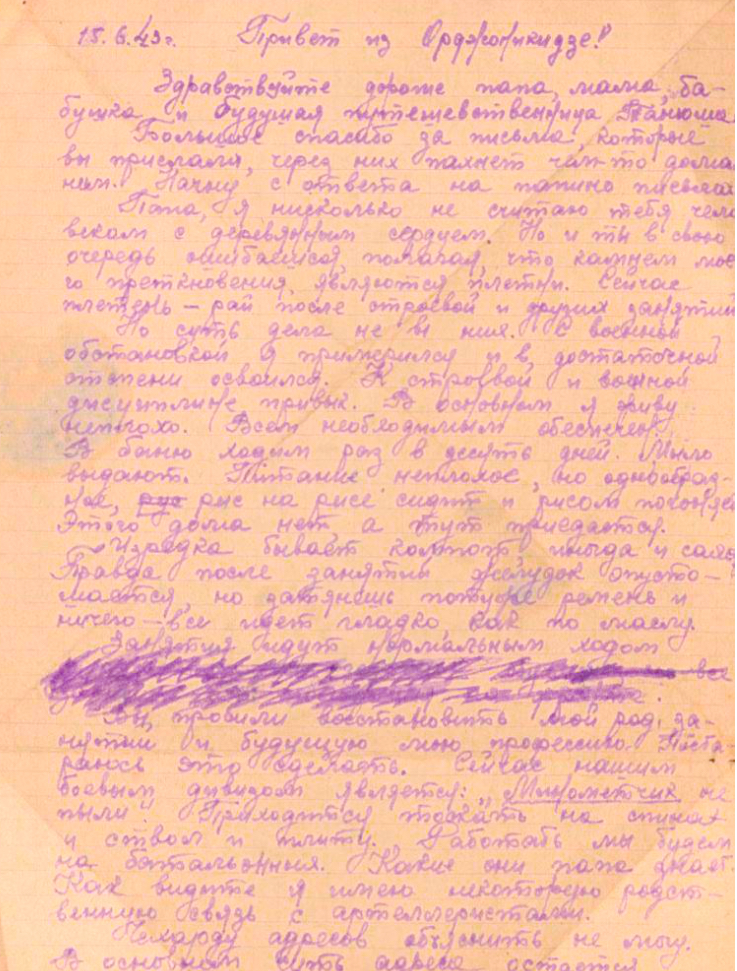 15.6.43г. Привет из Орджоникидзе!
Здравствуйте дороже папа, мама, ба-
бушка и будущая путешевственница Танюша.
Большое спасибо за письма, которые
вы прислали, через них пахнет чем то дома
ним. Начну с ответа на папино письмо
Папа, я нисколько не считаю тебя чело
веком с деревянным сердцем. Но и ты в свою
очередь ошибаешся полагая, что камнем мое
го преткновения, являются плетни. Сейчас
плетень – рай после строевой и других занятий
Но суть дела не в них. С военной
обстановкой я примерился и в достаточной
степени освоился. К строевой и военной
дисциплине привык. В основном я живу
неплохо. Всем необходимым обеспечен.
В баню ходим раз в десять дней. Мыло
выдают. Питание неплохое, но однообраз-
ное, рис на рисе сидит и рисом погоняет
Этого дома нет а тут приедается.
Изредка бывает компот иногда и сало
Правда после занятий желудок опусто-
шается, но затянешь потуже ремень и
ничего – все идет гладко как по маслу.
Занятия идут нормальным ходом
все
Вы, просили восстановить мой род, за-
нятий и будущую мою профессию. Поста-
раюсь это сделать. Сейчас нашим
боевым дивизом является: „Минометчик не
пыли". Приходится таскать на спинах
и ствол и плиту. Работать мы будем
на батальонных. Какие они папа знает.
Как видите я имею некоторую родст-
венную связь с артеллеристами.
Чехарду адресов объяснить не могу.
В основном суть адреса остается